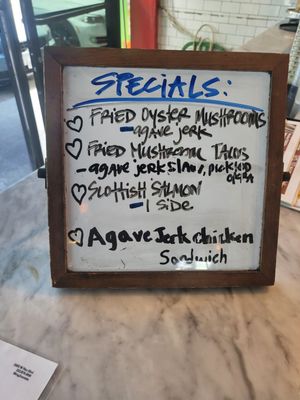 SPECIALS:
FRIED OYSTER MUSHROOMS
-agave jerk
FRIED MUSHROOM TACOS
-agave jerk slaw, pickled
SCOTTISH SALMON
-1 side
Agave Jerk Chicken
Sandwich